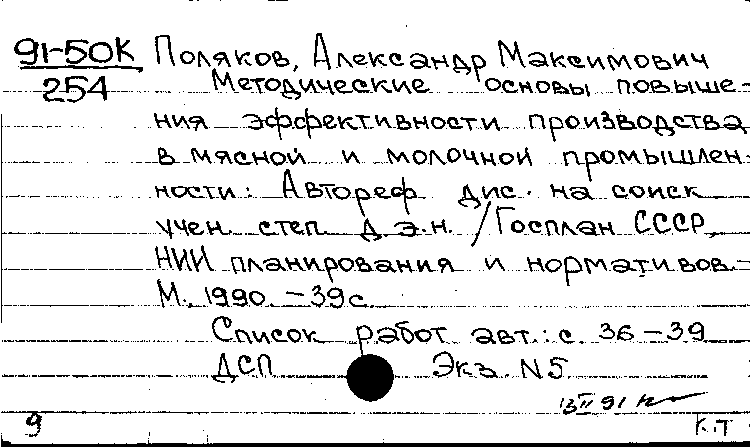 91-50К Поляков, Александр Максимович
254 Методические основы повыше-
ния эффективности производства
в мясной и молочной промышлен-
ности: Автореф дис. на соиск
учен. степ. д.э.н. /Госплан СССР,
НИИ планирования и нормативов.-
М., 1990. -39с.
Список работ авт.: с. 36-39
ДСП Экз. N5.
13 II 91
9 К.Т